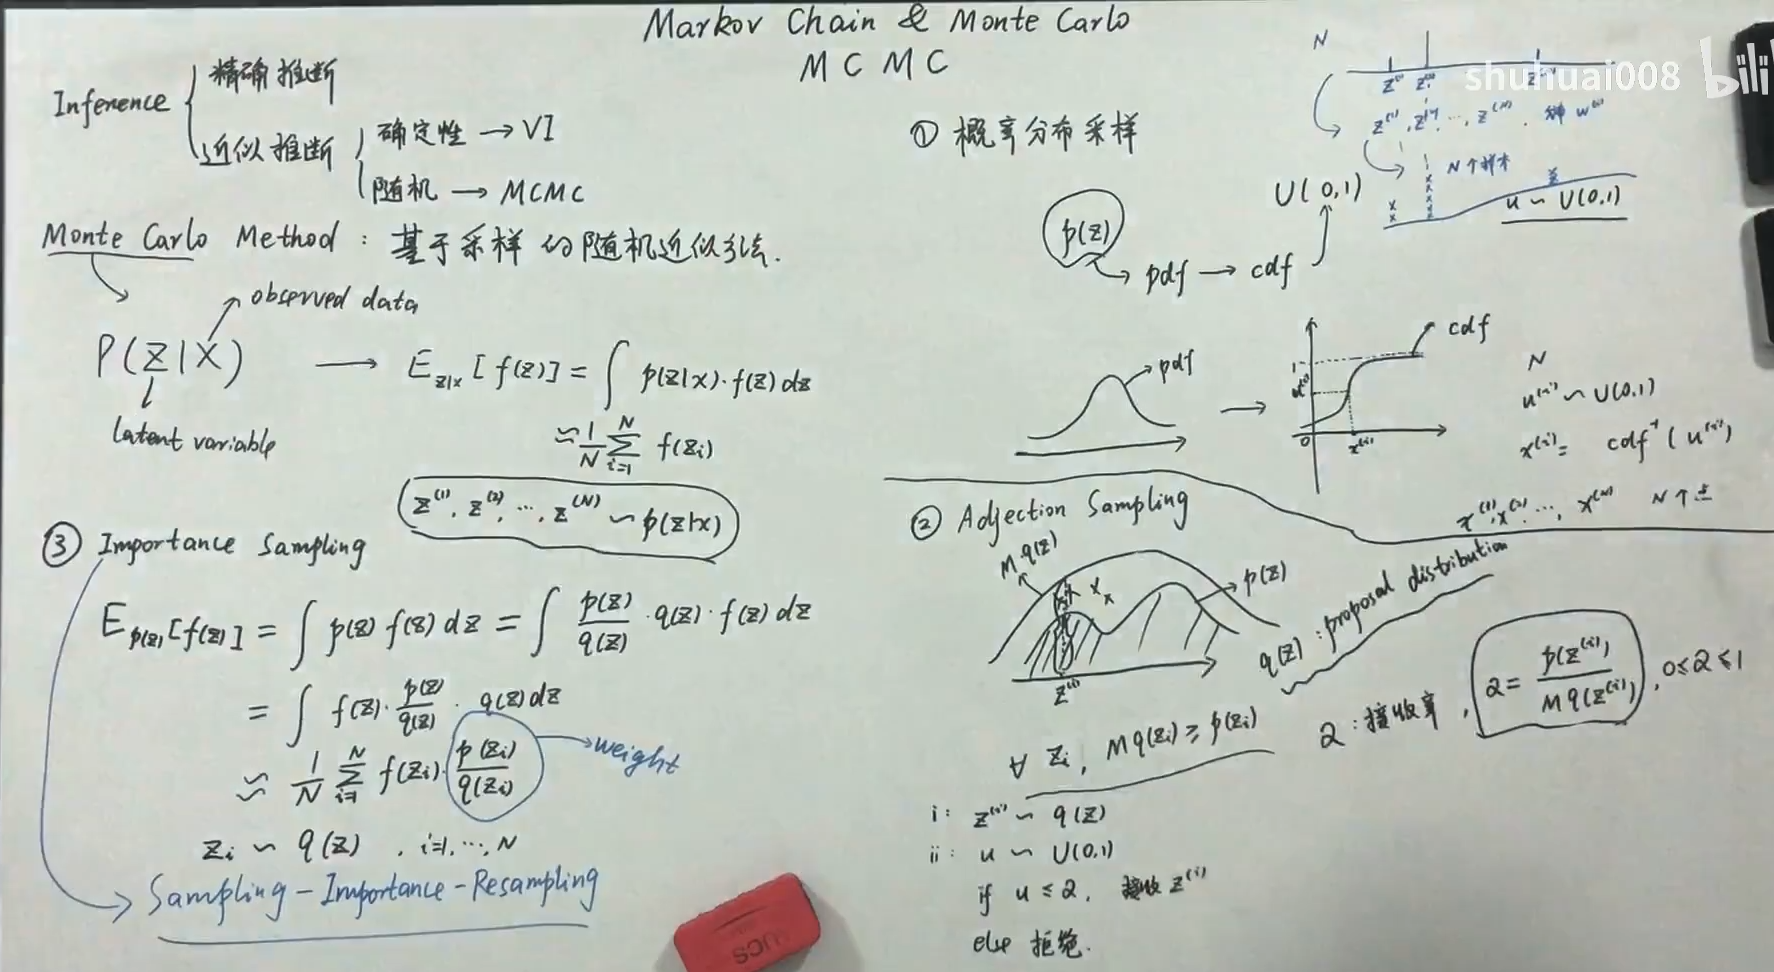 Markov Chain & Monte Carlo
MCMC
Inference
精确推断
近似推断
确定性 → VI
随机 → MCMC
Monte Carlo Method : 基于采样的随机近似方法.
observed data
P(Z|X) → E_{z|x}[f(z)] = ∫ p(z|x)·f(z) dz
latent variable
≈ 1/N ∑_{i=1}^{N} f(z_i)
z^{(1)}, z^{(2)}, ..., z^{(N)} ~ p(z|x)
③ Importance Sampling
E_{p(z)}[f(z)] = ∫ p(z) f(z) dz = ∫ p(z)/q(z) · q(z) · f(z) dz
= ∫ f(z) · p(z)/q(z) · q(z) dz
≈ 1/N ∑_{i=1}^{N} f(z_i) · p(z_i)/q(z_i) → weight
z_i ~ q(z) , i=1, ..., N
Sampling-Importance-Resampling
UCS
shuhuai008 bili
N
z^{(1)} z^{(2)}
z^{(1)}, z^{(2)}, ..., z^{(N)}, w^{(i)}
N个样本
① 概率分布采样
U(0,1)
u ~ U(0,1)
p(z) → pdf → cdf
pdf
cdf
1
u^{(i)}
0
x^{(i)}
N
u^{(i)} ~ U(0,1)
x^{(i)} = cdf^{-1}(u^{(i)})
x^{(1)}, x^{(2)}, ..., x^{(N)} N个点
② Adjection Sampling
M q(z)
p(z)
z^{(i)}
q(z) : proposal distribution
∀ z_i, M q(z_i) ≥ p(z_i)
α : 接收率, α = p(z^{(i)})/M q(z^{(i)}), 0≤α≤1
i: z^{(i)} ~ q(z)
ii: u ~ U(0,1)
if u ≤ α, 接收 z^{(i)}
else 拒绝.